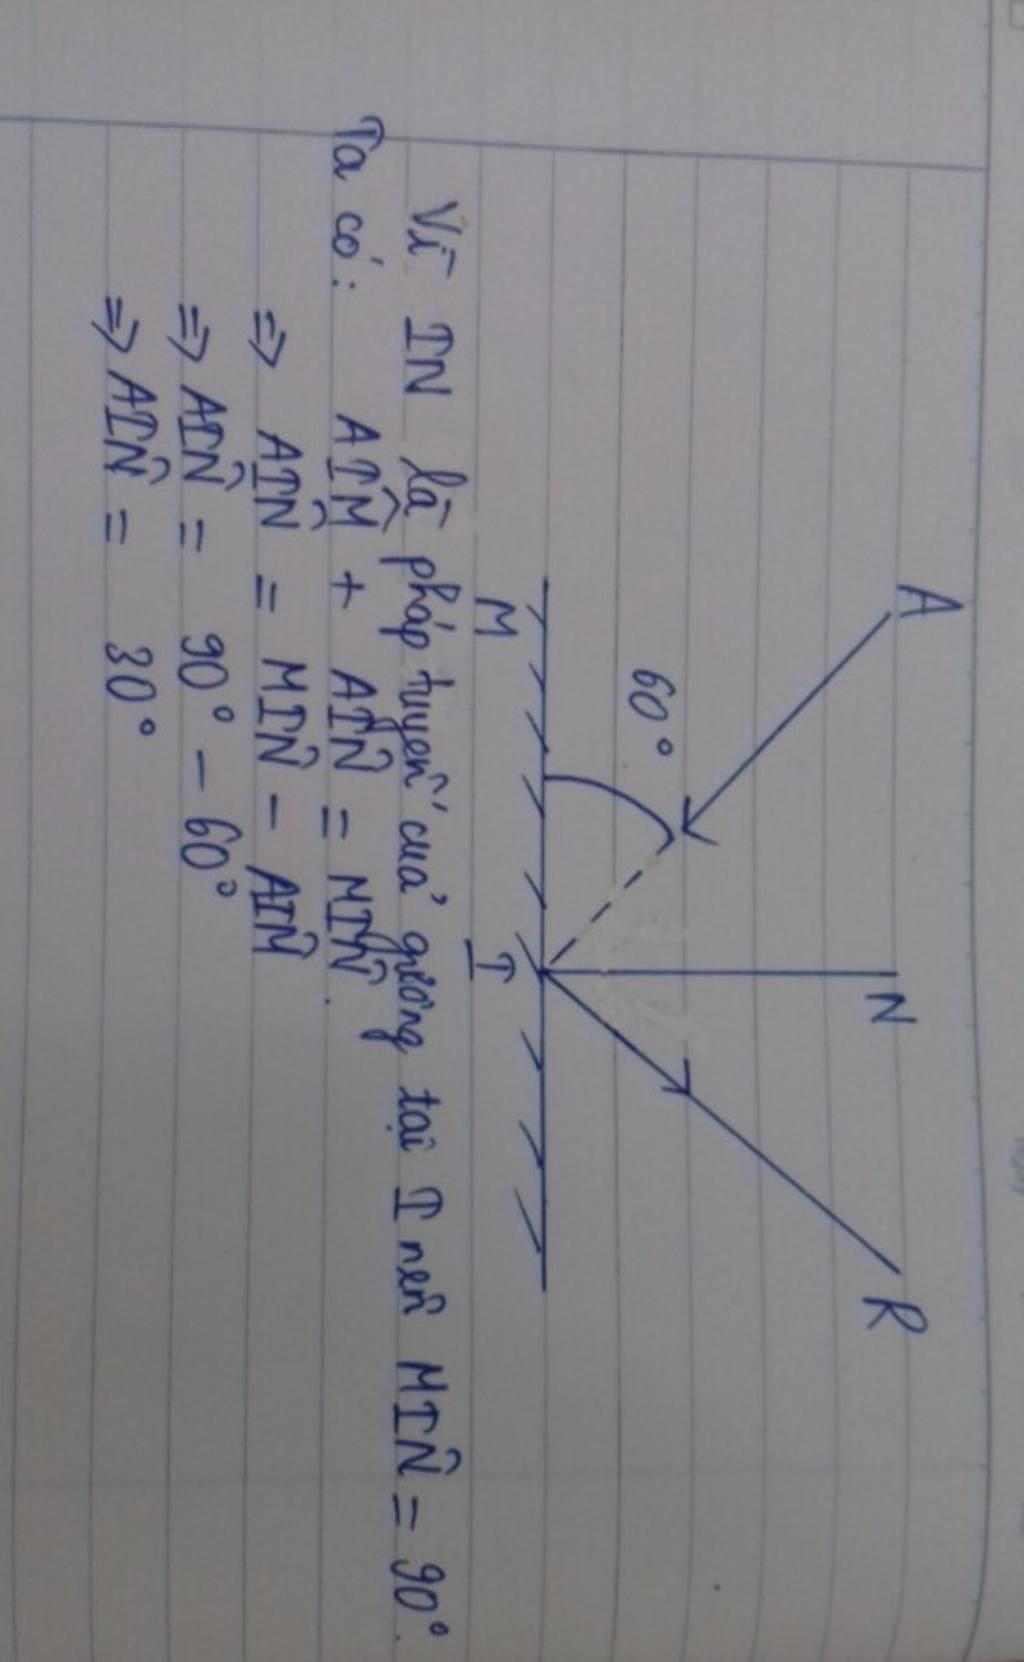 A N R
60°
M I
Vì IN là pháp tuyến của gương tại I nên MIN̂ = 90°.
Ta có: AIM̂ + AIN̂ = MIN̂.
=> AIN̂ = MIN̂ - AIM̂
=> AIN̂ = 90° - 60°
=> AIN̂ = 30°